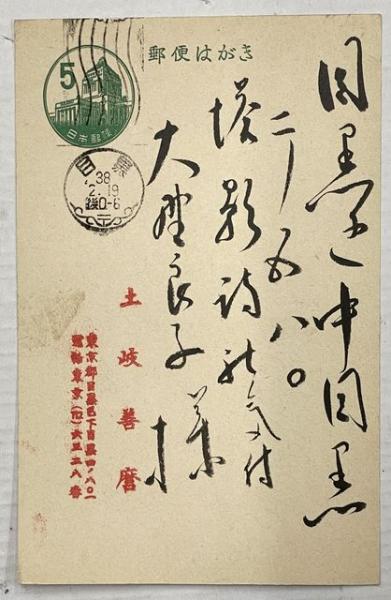 郵便はがき
5
日本郵便
目黒
38
2.19
後0-6
目黒区中目黒
二ノ五八〇
塔影詩社気付
大野良子様
土岐善麿
東京都目黒区下目黒四ノ八〇一
電話東京